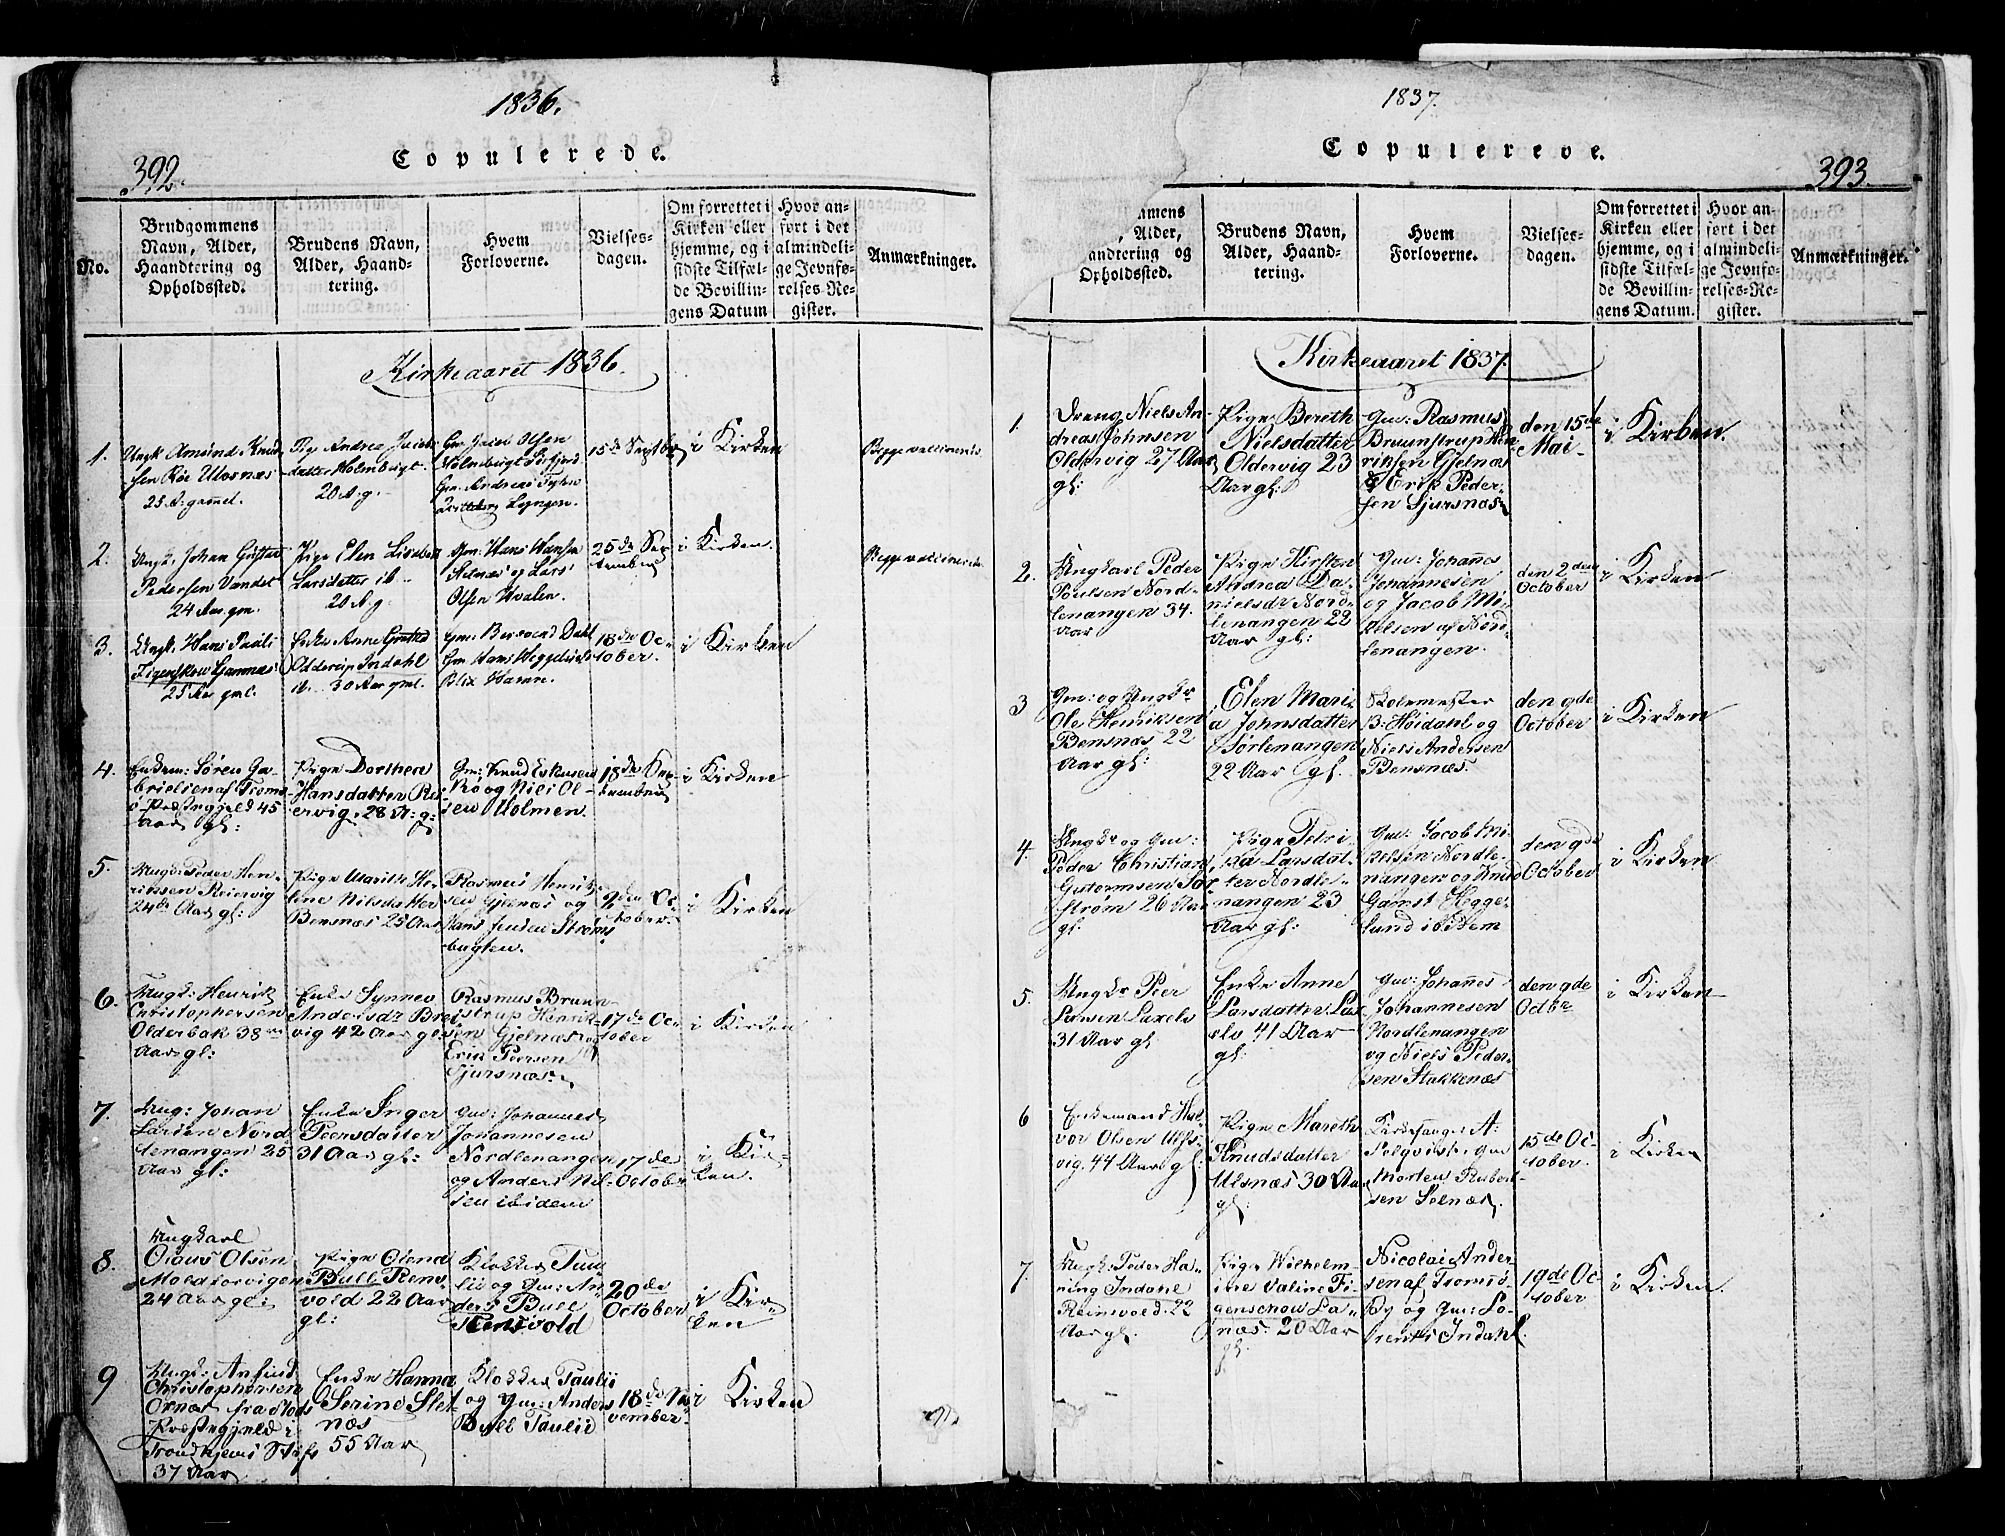 1836.
392.
Copulerede.
No.
Brudgommens
Navn, Alder,
Haandtering og
Opholdssted.
Brudens Navn,
Alder, Haand-
tering.
Hvem
Forloverne.
Vielses-
dagen.
Om forrettet i
Kirken eller
hjemme, og i
sidste Tilfæl-
de Bevillin-
gens Datum
Hvor an-
ført i det
almindeli-
ge Jevnfø-
relses-Re-
gister.
Anmærkninger.
Kirkeaaret 1836.
1.
Ungk Amund Knud
sen
25 A: gammel.
Pige Andrea Jacobs
datter Holmbugt.
20 A. g.
Olsen
Holmbugt
Gm. Andreas
Lyngen.
15de Septbr
i Kirken
2.
Ungk. Johan Gustav
Pedersen Vandet
24 Aar gm.
Pige Elen Lisabeth
Larsdatter ib..
20 A. g.
Gm: Hans Hansen
og Lars
Olsen
25de Sep
tember
i Kirken.
3.
Ungk. Hans Pauli
Figenskou
25 Aar gml.
Enke Anne
Olderup Indahl
ib.. 30 Aar gml.
Gm: Dahl
Gm Hans Heggelund
Blix
18de Oc-
tober.
i Kirken
4.
Enkem: Søren Ga-
brielsen af Troms-
ø Præstegjeld 45
Aar gl:
Pige Dorthea
Hansdatter Rei-
ervig, 28 A: g:
Gm: Knud
og Nils Ol-
sen Holmen.
18de Sep-
tember
i Kirken
5.
Ungk: Peder Hen-
riksen Reiervig
24de Aar gl:
Pige Marith Her-
line Nilsdatter
Bensnæs 25 Aar
Rasmus Henrik-
sen Gjelnæs og
Hans Jensen Stroms-
bugten.
9de Oc-
tober.
i Kirken
6.
Ungk: Henrik
Christophersen
Olderbak 38
Aar gl:
Enke Synnev
Andersdr Brei
vig 42 Aar gl:
Rasmus Bruun-
strup Henrik-
sen Gjelnæs og
Erik Peersen
Sjursnæs.
17de Oc-
tober
i Kirken
7.
Ung: Johan
Larsen Nord
lenangen 25
Aar gl:
Enke Inger
Peersdatter
31 Aar gl:
Gm: Johannes
Johannesen
Nordlenangen
og Anders Nil-
sen ibidem
17de
October
i Kir-
ken.
8.
Ungkarl
Olaus Olsen
Moldforvigen
24 Aar gl:
Pige Olena
Bull Rens-
vold 22 Aar
gl:
Klokker Tau
lii og Gm: An-
ders Bull
Rensvold
20de
October
i Kir-
ken
9
Ungk: Anfind
Christophersen
Ornæs fra
Præstegjeld i
Trondhjems Stift
37 Aar
Enke Hanna
Serine Slet
næs
55 Aar
Klokker Taulii
og Gm: Anders
Bull Taulii
18de No
vember
i Kirken
1837.
393.
Copulerede.
mmens
Alder,
andtering og
Opholdssted.
Brudens Navn,
Alder, Haand-
tering.
Hvem
Forloverne.
Vielses-
dagen.
Om forrettet i
Kirken eller
hjemme, og i
sidste Tilfæl-
de Bevillin-
gens Datum.
Hvor an-
ført i det
almindeli-
ge Jevnfø-
relses-Re-
gister.
Anmærkninger.
Kirkeaaret 1837.
1.
Dreng Niels An-
dreas Johnsen
Oldervig 27 Aar
gl:
Pige Bereth
Nielsdatter
Oldervig 23
Aar gl:
Gm: Rasmus
Bruunstrup Hen
riksen Gjelnæs
& Erik Peder-
sen Sjursnæs
den 15de
Mai -
i Kirken.
2.
Ungkarl Peder
Poulsen Nord-
lenangen 34.
Aar
Pigen Kirsten
Andrea Da-
nielsdr Nord-
lenangen 22
Aar gl:
Gm: Johannes
Johannesen
og Jacob Mi-
kelsen af Nord-
lenangen.
den 2den
October
i Kirken
3
Gm: og Ungkr
Ole Henriksen
Bensnæs 22
Aar gl:
Elen Mari-
a Johnsdatter
Sørlenangen
22 Aar gl.
Skolemester
B. Høidahl og
Niels Andersen
Bensnæs.
den 9de
October
i Kirken
4.
Ungkr og Gm:
Peder Christian
Gutormsen Sør
strøm 26 Aar
gl:
Pige Petri-
ka Larsdat-
ter Nordle-
nangen 23
Aar gl:
Gm: Jacob Mi-
kelsen Nordle-
nangen og Knud
Gamst Hegge-
lund ibidem
den 9de
October
i Kirken
5.
Ungkr Peer
Larsen Laxelv
31 Aar gl
Enke Anne
Larsdatter Lax
elv 41 Aar
gl:
Gm: Johannes
Johannesen
Nordlenangen
og Niels Peder-
sen Stakkenæs
den 9de
Octbr
i Kirken
6
Enkemand Hal
vor Olsen Ulfs-
vig. 44 Aar gl:
Pige Mareth
Knudsdatter
Ulsnæs 30 Aar
gl:
Kirkesanger A:
Selqvist, Gm
Morten Rubert
sen Selnæs.
15de Oc-
tober.
i Kirken
7.
Ungk: Peder Ha-
ning Indahl
Reinsvold. 22
Aar gl.
Pige Wilhelm-
ine Valine Fi-
genschou La-
næs: 20 Aar
gl:
Nicolai Ander-
sen af Tromsø
By og Gm: Lo-
rents Indahl.
19de Oc-
tober
i Kirken.